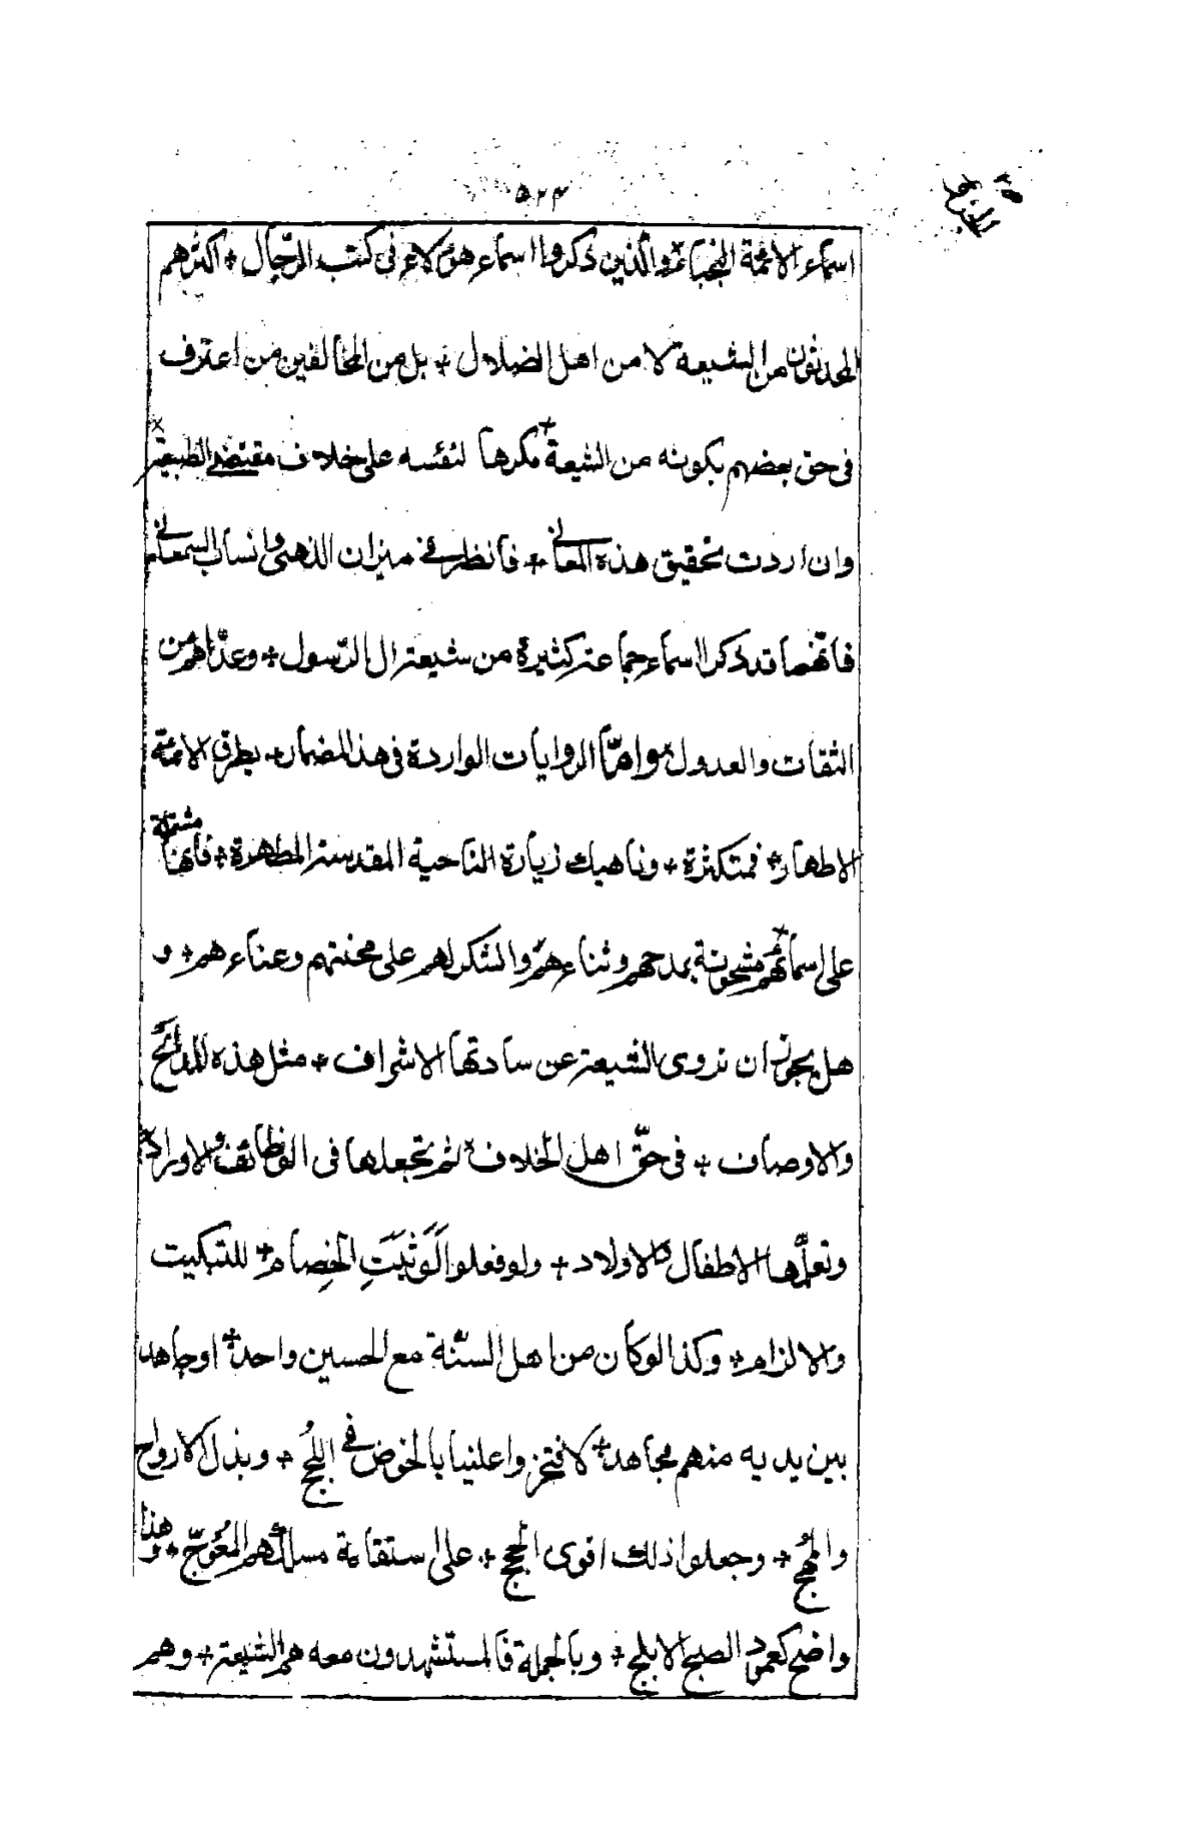 ۵۲۳
اسماء الائمة النجباء + والذين ذكروا اسماء هؤلاء فى كتب الرّجال + اكثرهم
المحدثون من الشيعة لا من اهل الضلال + بل من المخالفين من اعترف
فى حق بعضهم بكونه من الشيعة + مكرها لنفسه على خلاف مقتضى الطبيعة +
وان اردت تحقيق هذه المعانى + فانظر فى ميزان الذهبى وانساب السمعانى
فانّهما قد ذكرا اسماء جماعة كثيرة من شيعة ال الرّسول + وعدّاهم من
الثقات والعدول + وامّا الروايات الواردة فى هذا المضمار + بطرق الائمة
الاطهار + فمتكثرة + وناهيك زيارة الناحية المقدسة المطهرة + فانها مشتملة
على اسمائهم + مشحونة بمدحهم وثناءهم + والشكر لهم على محنتهم وعناءهم + و
هل يجوز ان تروى الشيعة عن ساداتها الاشراف + مثل هذه المدائح
والاوصاف + فى حقّ اهل الخلاف + ثم تجعلها فى الوظائف والاوراد +
وتعلّمها الاطفال والاولاد + ولو فعلوا لَوَثَبَتِ الخِصام + للتبكيت
والالزام + وكذا لو كان من اهل السّنّة مع الحسين واحد + او جاهد
بين يديه منهم مجاهد + لافتخروا علينا بالخوض فى اللُجج + وبذل الارواح
والمُهج + وجعلوا ذلك اقوى الحجج + على استقامة مسلكهم المُعْوَجّ + وهذا
واضح كعمود الصبح الابلج + وبالجملة فالمستشهدون معه هم الشيعة + وهم